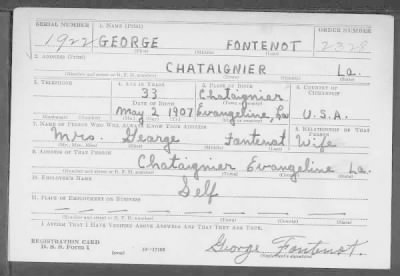 SERIAL NUMBER 1. NAME (Print) ORDER NUMBER
1922 GEORGE FONTENOT 2328
(First) (Middle) (Last)
2. ADDRESS (Print)
CHATAIGNIER La.
(Number and street or R. F. D. number) (Town) (County) (State)
3. TELEPHONE 4. AGE IN YEARS 5. PLACE OF BIRTH 6. COUNTRY OF CITIZENSHIP
33 Chataignier
DATE OF BIRTH (Town or county)
May 2 1907 Evangeline, La U.S.A.
(Exchange) (Number) (Mo.) (Day) (Yr.) (State or country)
7. NAME OF PERSON WHO WILL ALWAYS KNOW YOUR ADDRESS 8. RELATIONSHIP OF THAT PERSON
Mrs. George Fontenot Wife
(Mr., Mrs., Miss) (First) (Middle) (Last)
9. ADDRESS OF THAT PERSON
Chataignier Evangeline La.
(Number and street or R. F. D. number) (Town) (County) (State)
10. EMPLOYER'S NAME
Self
11. PLACE OF EMPLOYMENT OR BUSINESS
(Number and street or R. F. D. number) (Town) (County) (State)
I AFFIRM THAT I HAVE VERIFIED ABOVE ANSWERS AND THAT THEY ARE TRUE.
REGISTRATION CARD
D. S. S. Form 1 (over) 16—17105 George Fontenot.
(Registrant's signature)